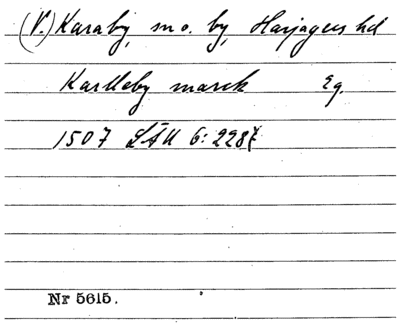 (V.) Karaby, sn o. by, Harjagers hd
Karlleby marck Eg.
1507 LÄU 6: 228
Nr 5615.